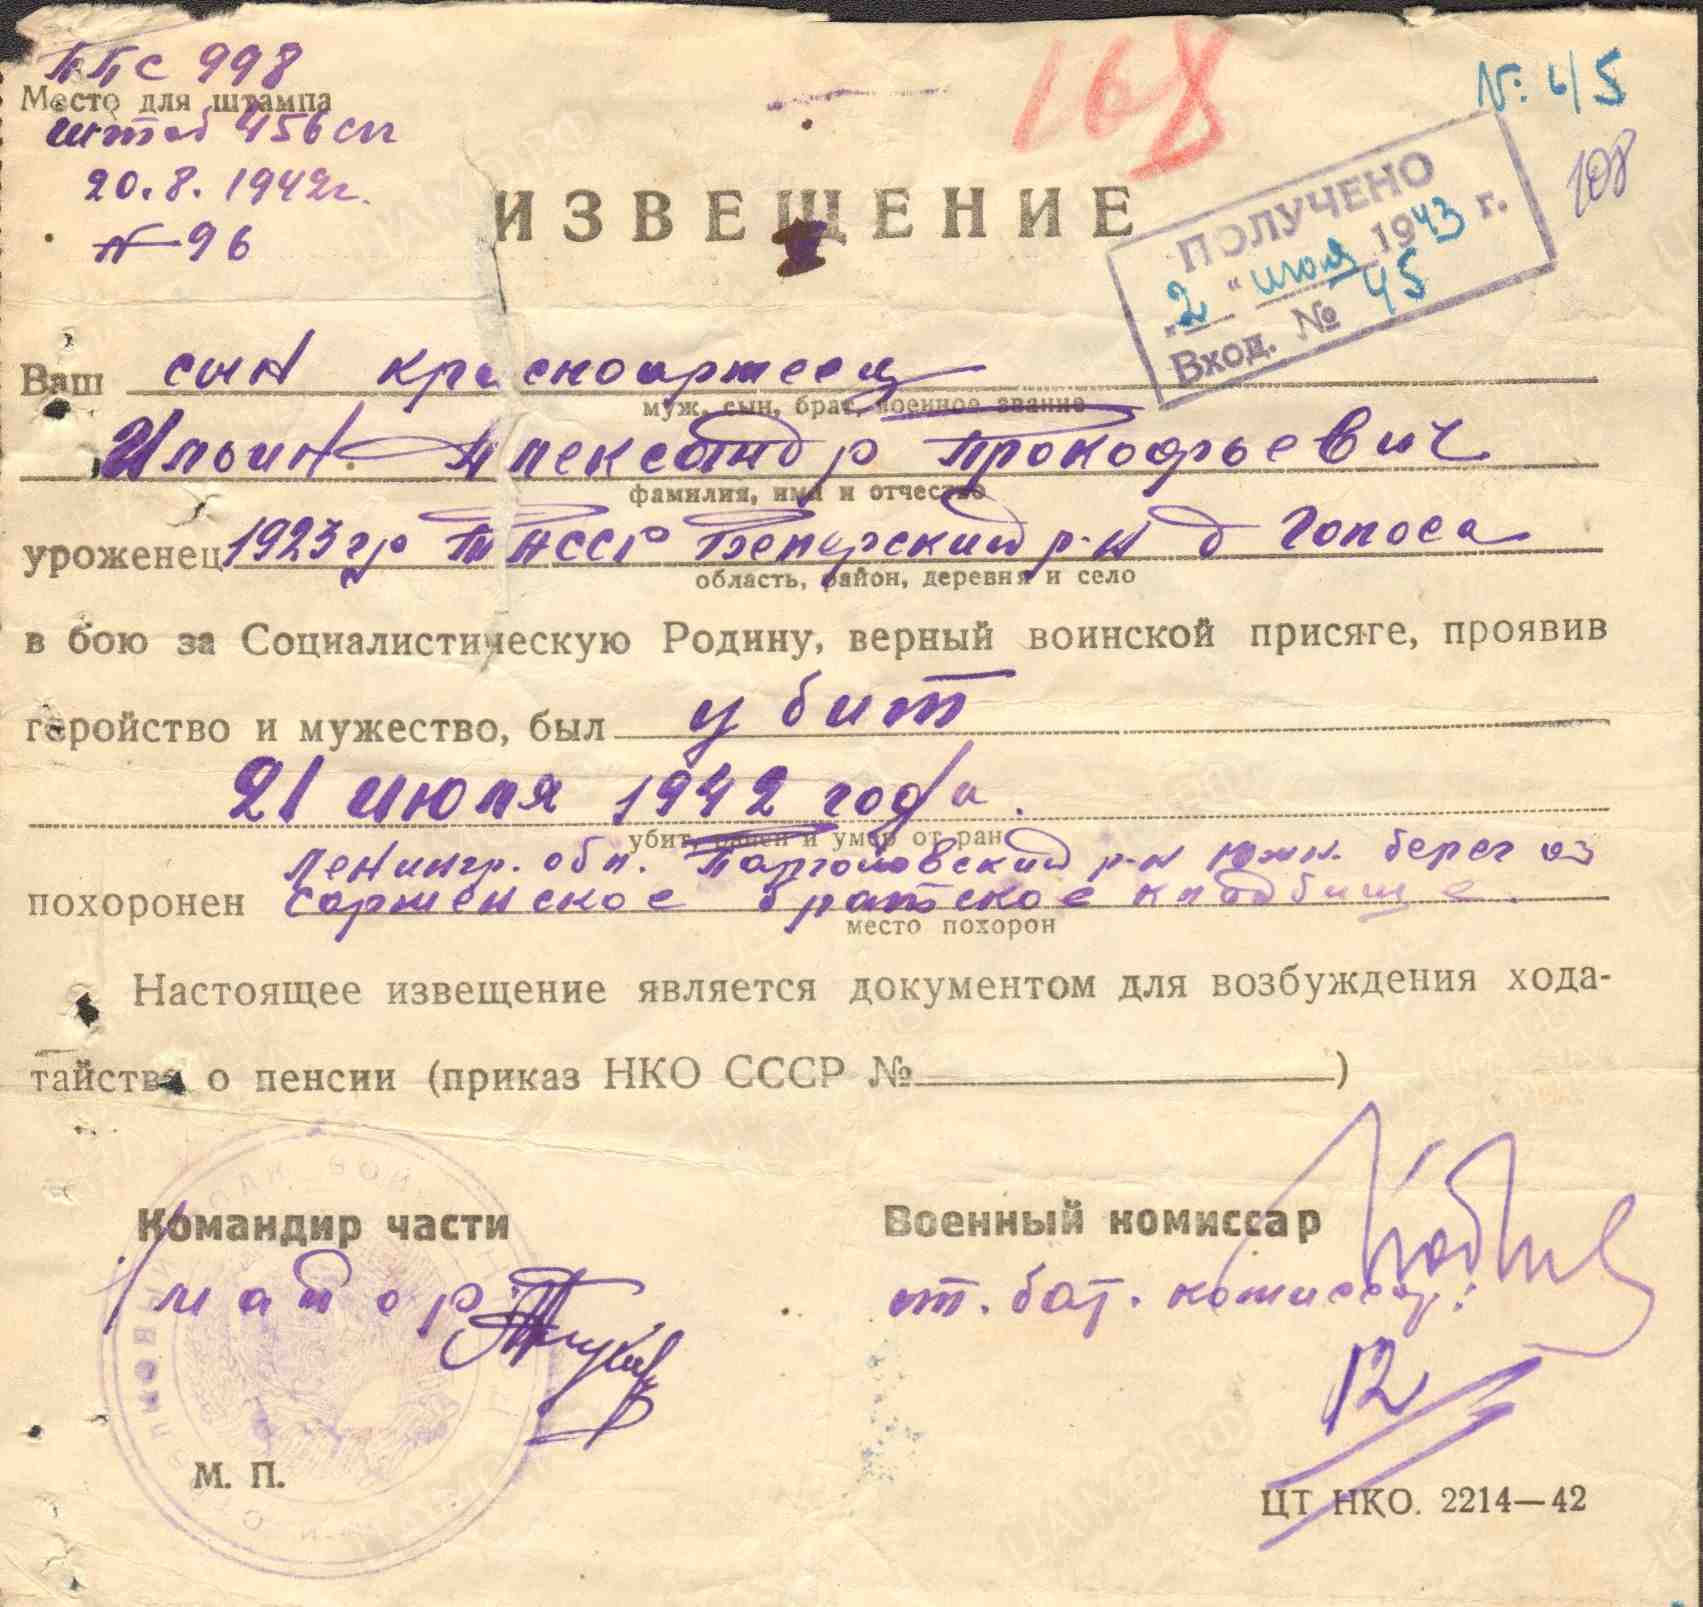 ППС 998
Место для штампа
штаб 456 сп
20.8.1942г.
№ 96
168
№: 45
108
ИЗВЕЩЕНИЕ
ПОЛУЧЕНО
"2" июля 1943 г.
Вход. № 45
Ваш сын красноармеец
муж, сын, брат, военное звание
Ильин Александр Прокофьевич
фамилия, имя и отчество
уроженец 1923 гр ТАССР р-н д
область, район, деревня и село
в бою за Социалистическую Родину, верный воинской присяге, проявив
геройство и мужество, был убит
21 июля 1942 года.
убит, ранен и умер от ран
Ленингр. обл. Парголовский р-н южн. берег оз
похоронен братское кладбище.
место похорон
Настоящее извещение является документом для возбуждения хода-
тайства о пенсии (приказ НКО СССР № )
Командир части
майор
Военный комиссар
ст. бат. комиссар:
12
М. П.
ЦТ НКО. 2214—42